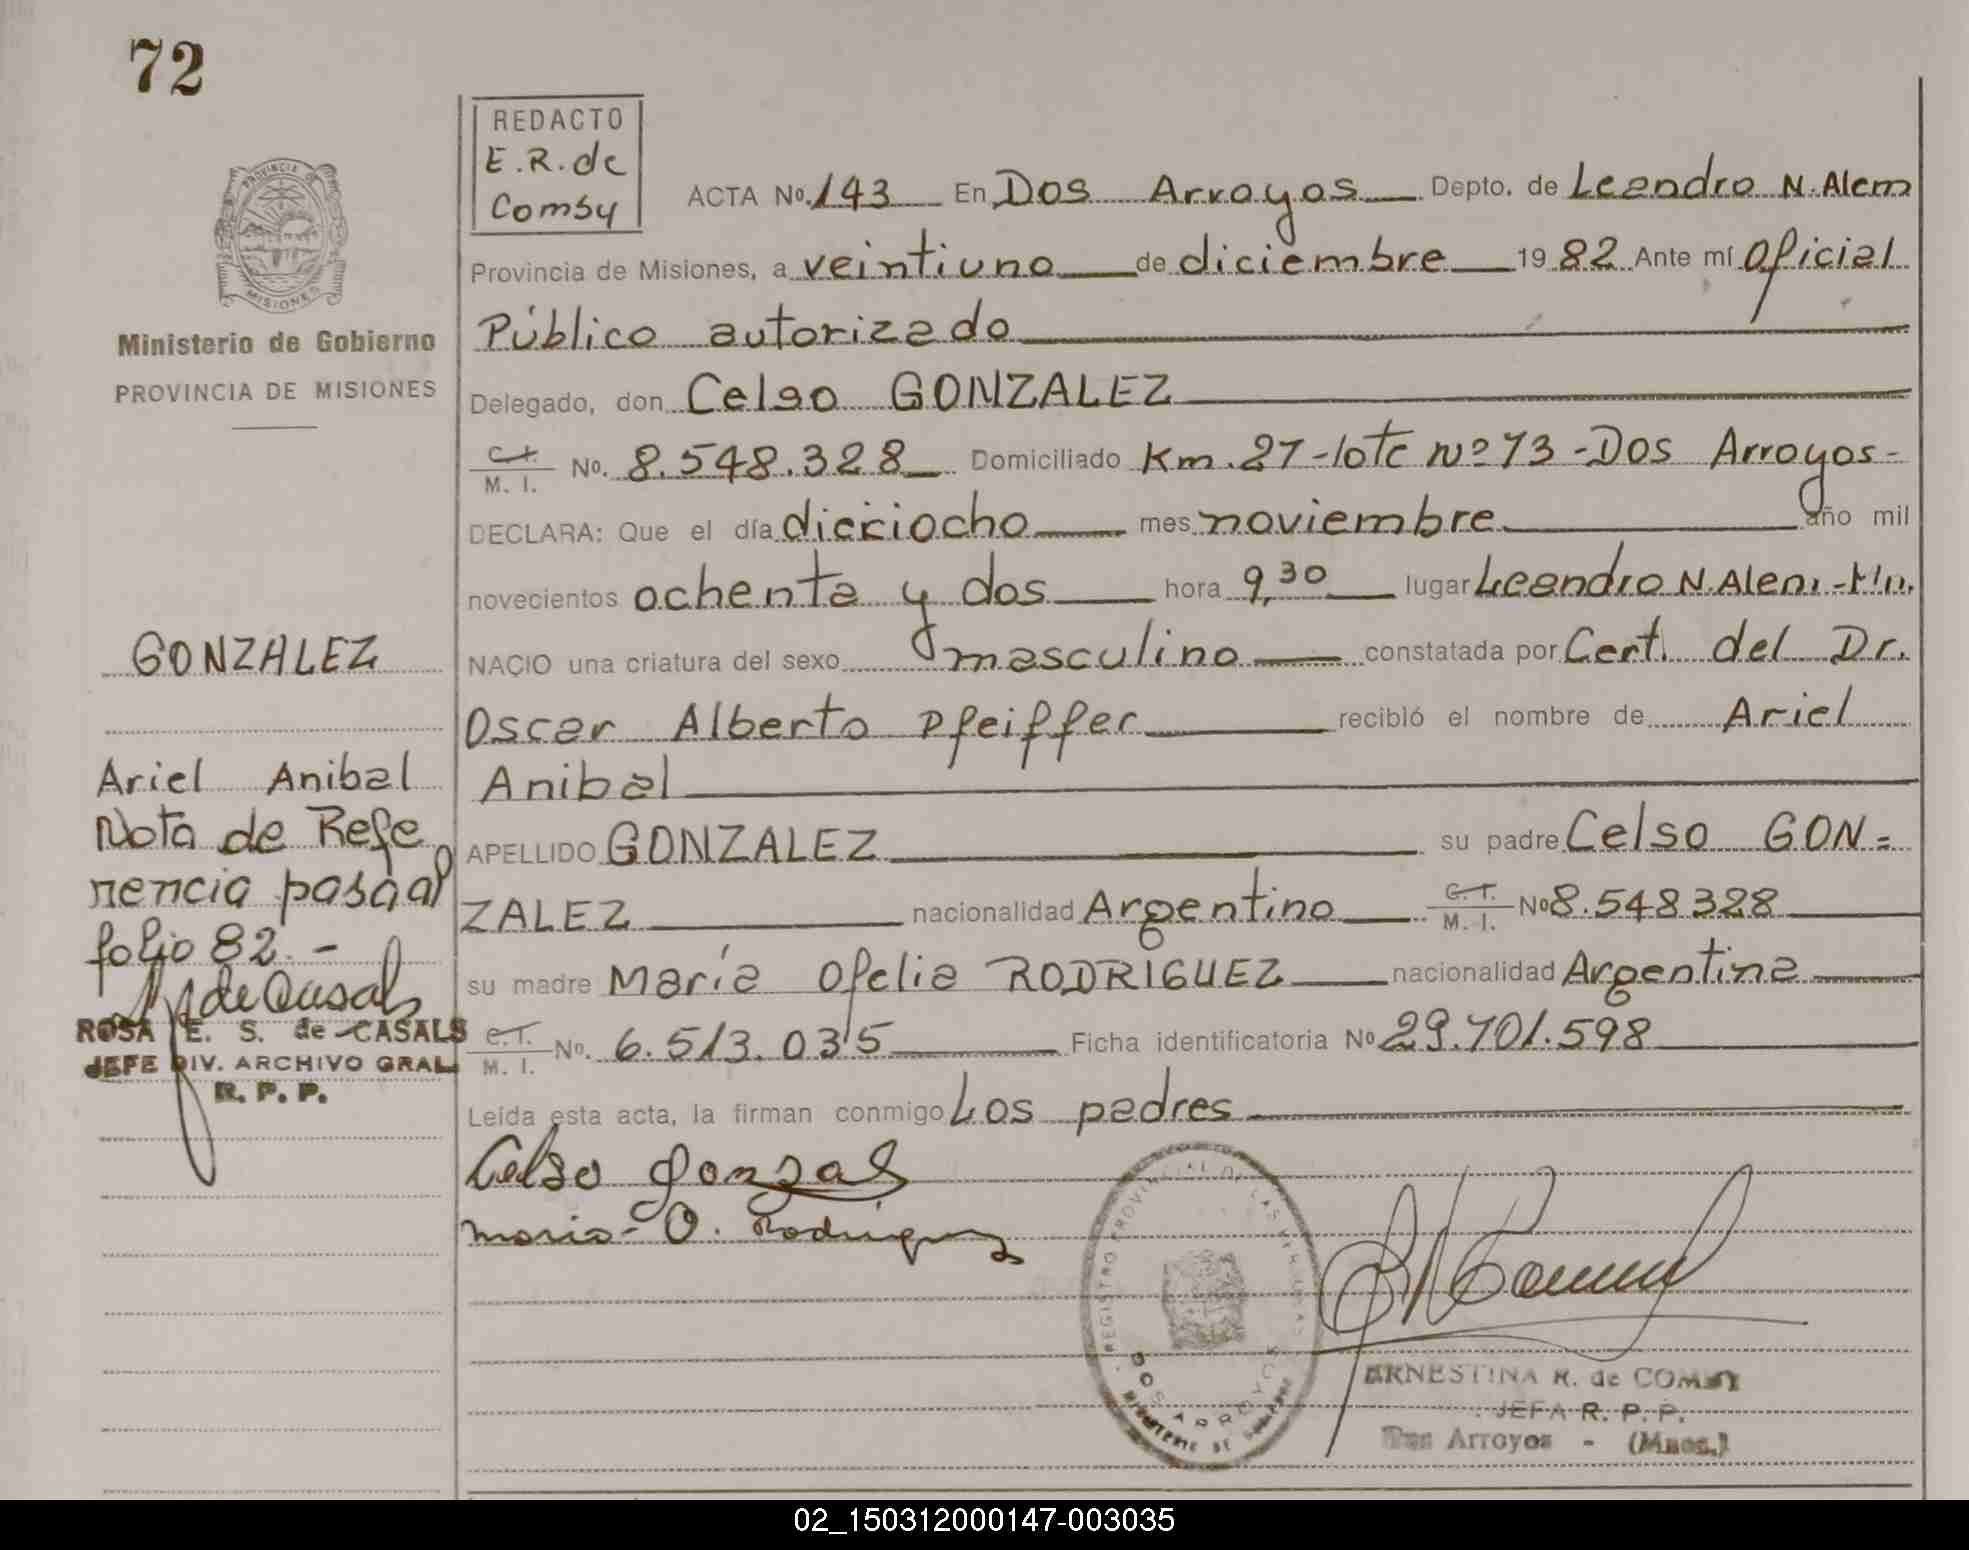 72
REDACTO
E.R. de
Comsy
ACTA No. 143 En Dos Arroyos Depto. de Leandro N. Alem
Provincia de Misiones, a veintiuno de diciembre 19 82 Ante mí Oficial
Público autorizado
Delegado, don Celso GONZALEZ
C.I.
M. I. No. 8.548.328 Domiciliado Km. 27-lote Nº 73 - Dos Arroyos-
DECLARA: Que el día dieciocho mes noviembre año mil
novecientos ochenta y dos hora 9,30 lugar Leandro N. Alem.
NACIO una criatura del sexo masculino constatada por Cert. del Dr.
Oscar Alberto Pfeiffer recibió el nombre de Ariel
Anibal
APELLIDO GONZALEZ su padre Celso GON=
ZALEZ nacionalidad Argentino C.I. M. I. No 8.548328
su madre María Ofelia RODRIGUEZ nacionalidad Argentina
C.I.
M. I. No. 6.513.035 Ficha identificatoria No 29.701.598
Leída esta acta, la firman conmigo Los padres
Celso Gonzal
Maria O. Rodriguez
REGISTRO PROVINCIAL DE LAS PERSONAS
DOS ARROYOS
MINISTERIO DE GOBIERNO
ERNESTINA R. de COMSY
JEFA R. P. P.
Dos Arroyos - (Mnes.)
PROVINCIA DE
MISIONES
Ministerio de Gobierno
PROVINCIA DE MISIONES
GONZALEZ
Ariel Anibal
Nota de Refe
rencia pasa al
folio 82.-
ROSA E. S. de CASALS
JEFE DIV. ARCHIVO GRAL.
R. P. P.
02_150312000147-003035